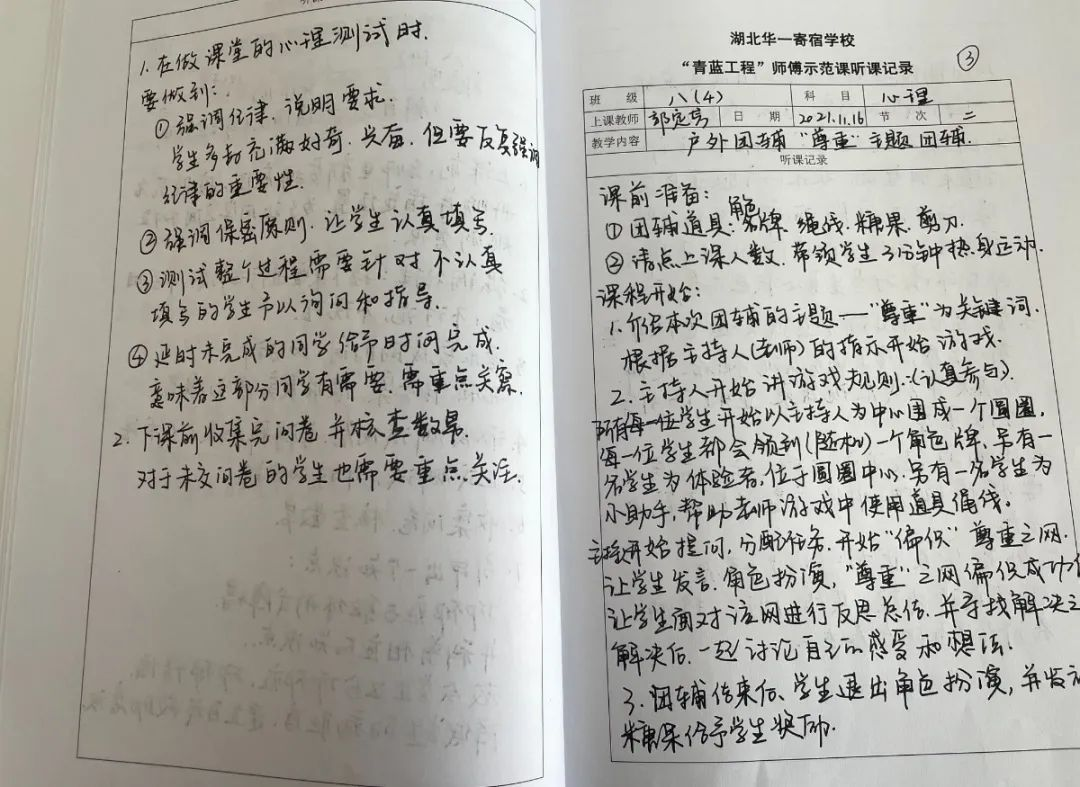 1. 在做课堂的心理测试时.
要做到:
① 强调纪律, 说明要求.
学生多动充满好奇. 兴奋. 但要反复强调
纪律的重要性.
② 强调保密原则. 让学生认真填写.
③ 测试整个过程需要针对不认真
填写的学生予以询问和指导.
④ 延时未完成的同学给予时间完成.
意味着这部分同学有需要. 需重点关察.
2. 下课前收集完问卷并核查数量.
对于未交问卷的学生也需要重点关注.
湖北华一寄宿学校
“青蓝工程”师傅示范课听课记录
③
班 级 八(4) 科 目 心理
上课教师 日 期 2021.11.16 节 次 二
教学内容 户外团辅 “尊重” 主题团辅.
听课记录
课前准备:
① 团辅道具: 角色名牌 绳线. 糖果. 剪刀.
② 清点上课人数. 带领学生3分钟热身运动.
课程开始:
1. 介绍本次团辅的主题一“尊重”为关键词.
根据主持人(老师)的指示开始游戏.
2. 主持人开始讲游戏规则.(认真参与).
所有每一位学生开始以主持人为中心围成一个圆圈,
每一位学生都会领到(随机)一个角色牌. 另有一
名学生为体验者, 位于圆圈中心. 另有一名学生为
小助手, 帮助老师游戏中使用道具绳线。
主持人开始提问, 分配任务. 开始“偏织”尊重之网.
让学生发言. 角色扮演, “尊重”之网偏织成功后
让学生面对该网进行反思总结. 并寻找解决之
解决后. 一起讨论自己的感受和想法.
3. 团辅结束后. 学生退出角色扮演, 并发
糖果给予学生奖励.